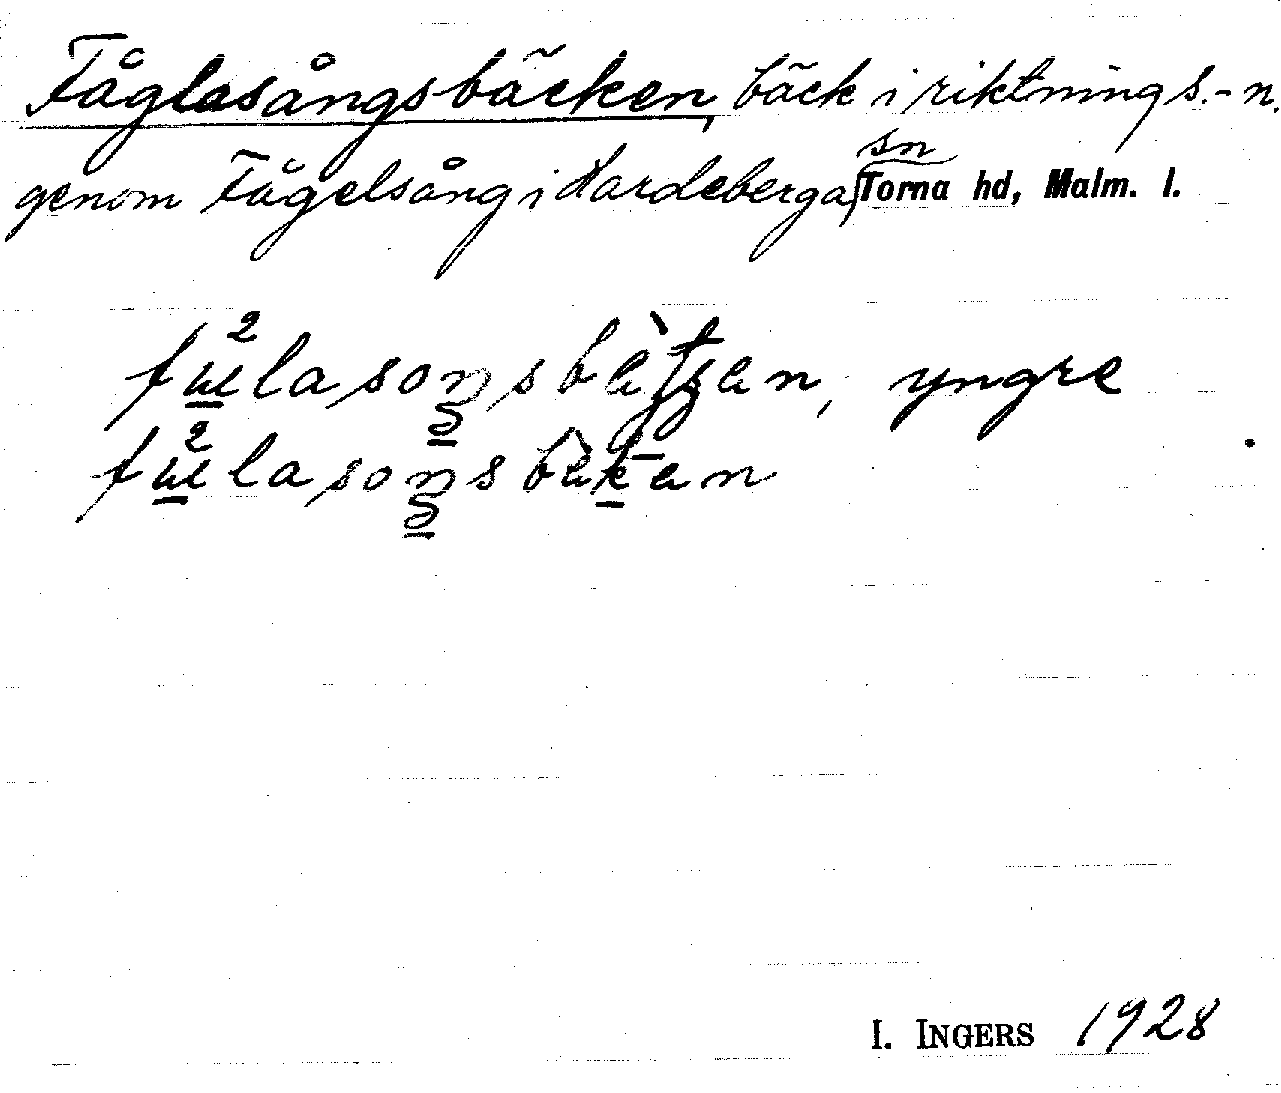 Fåglasångsbäcken, bäck i riktning s.-n.
genom Fågelsång i Hardeberga sn Torna hd, Malm. l.
yngre
I. INGERS 1928